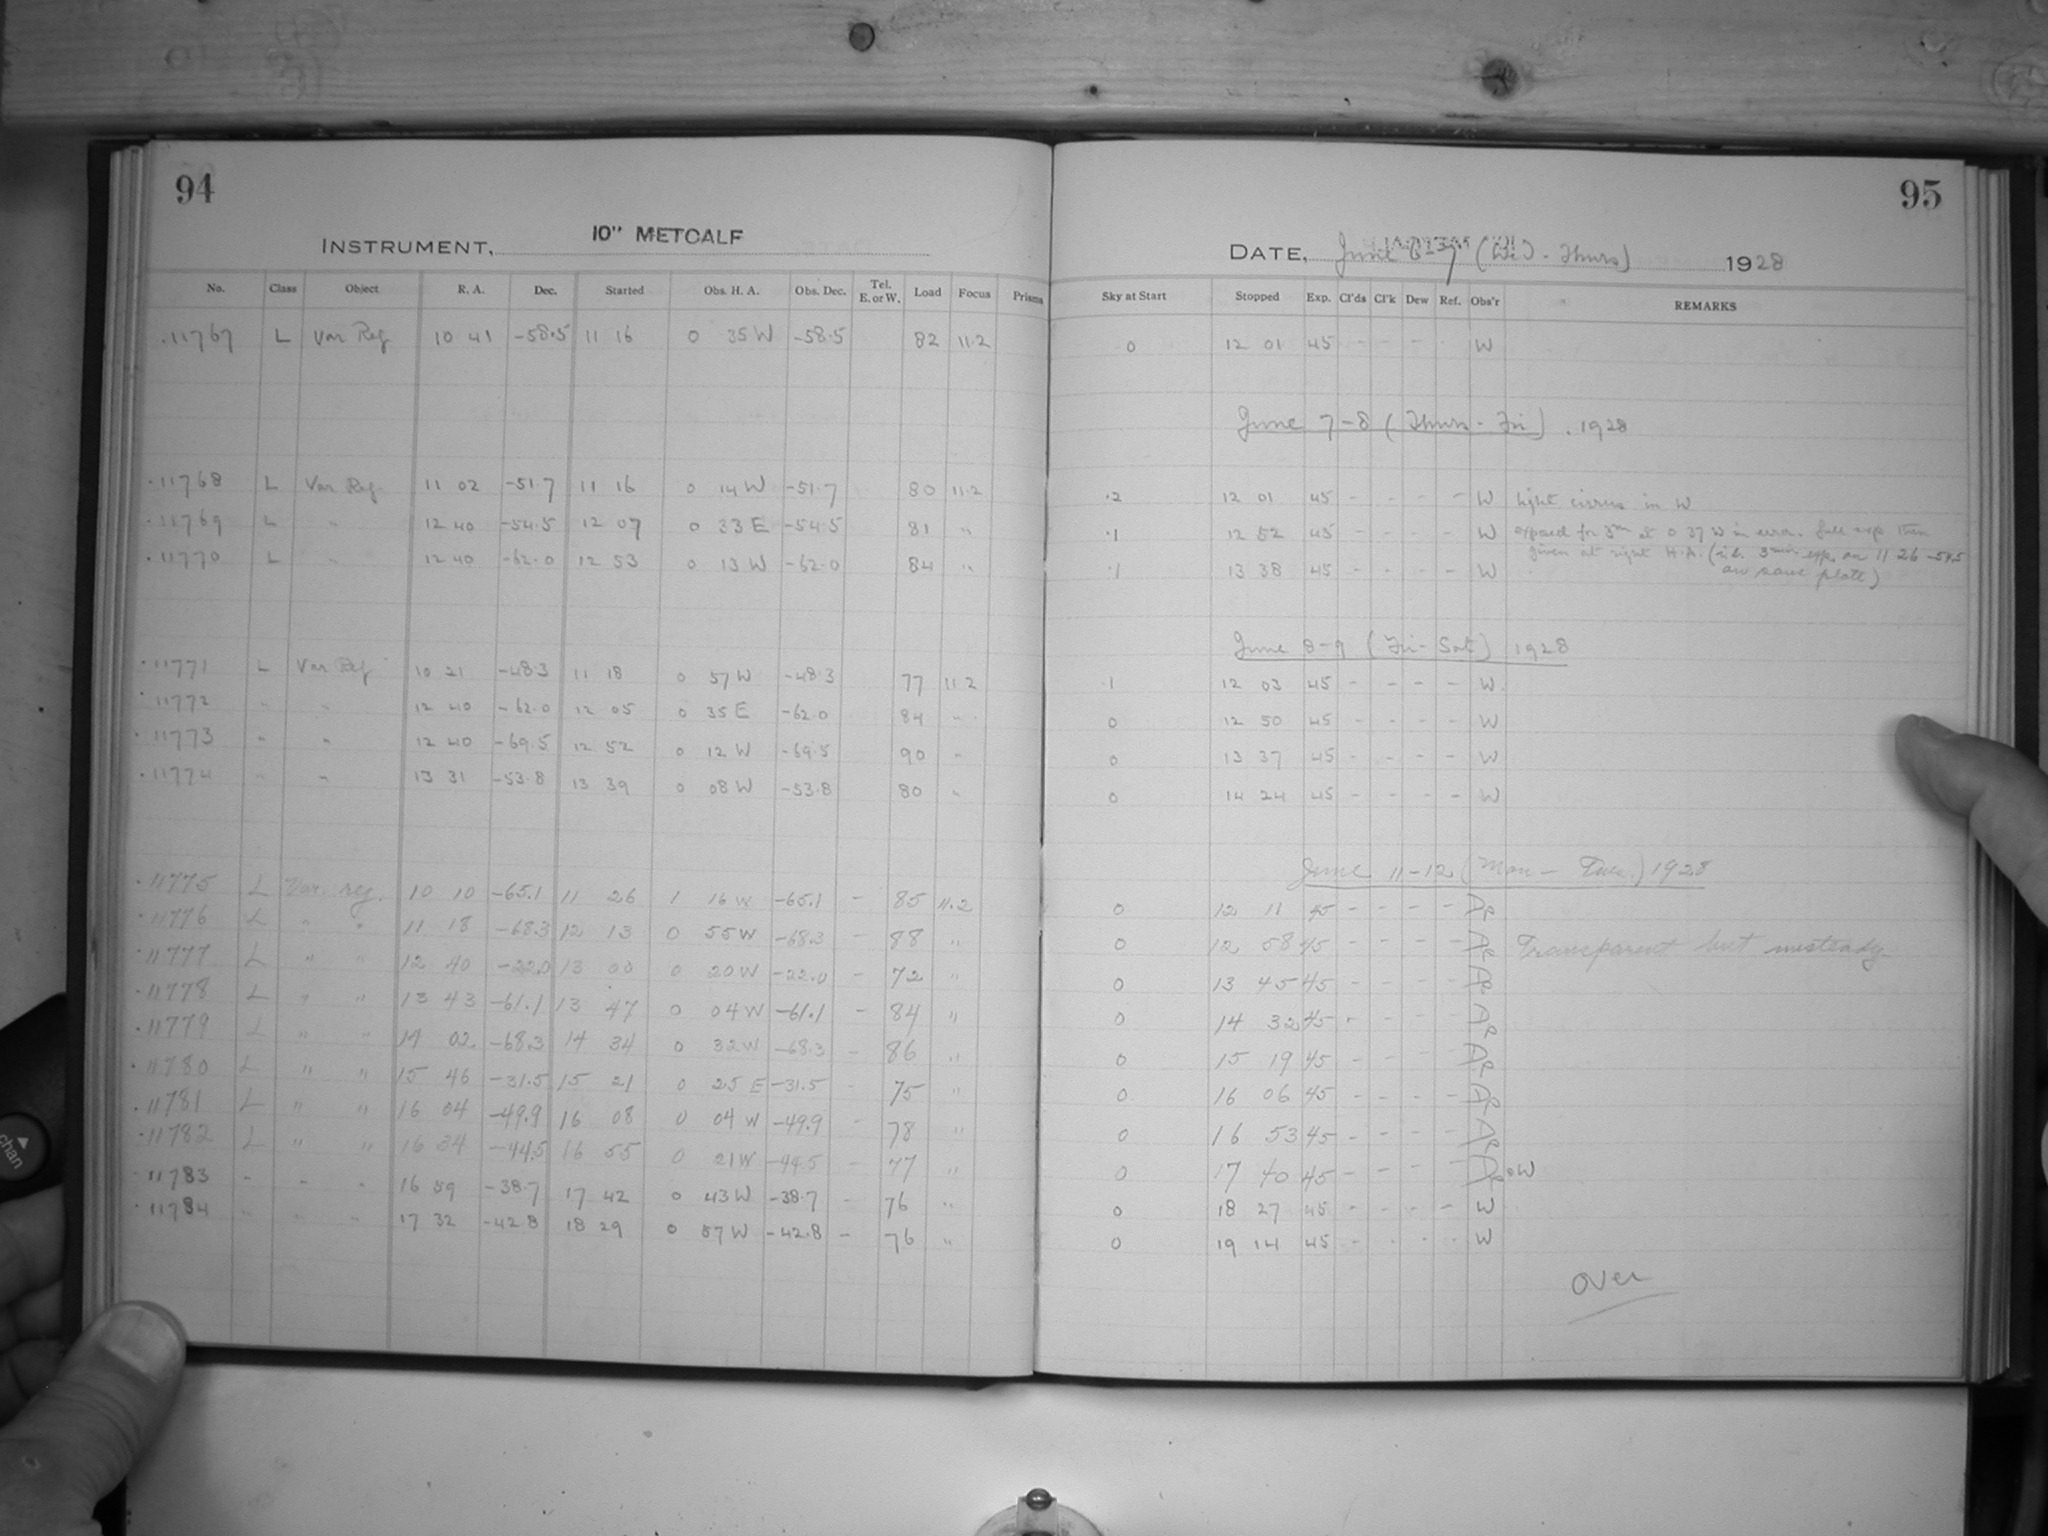 94
95
INSTRUMENT, 10" METCALF
DATE, June 6-7 (Wed - Thurs) 1928
No. Class Object R. A. Dec. Started Obs. H. A. Obs. Dec. Tel. E. or W. Load Focus Prisms Sky at Start Stopped Exp. Cl'ds Cl'k Dew Ref. Obs'r REMARKS
.11767 L Var Reg 10 41 -58.5 11 16 0 35 W -58.5 82 11.2 0 12 01 45 - - - - W
June 7-8 (Thurs - Fri) . 1928
.11768 L Var Reg 11 02 -51.7 11 16 0 14 W -51.7 80 11.2 .2 12 01 45 - - - - W light cirrus in W
.11769 L " 12 40 -54.5 12 07 0 33 E -54.5 81 " .1 12 52 45 - - - - W exposed for 3m at 0 37 W in error. full exp then
given at right H.A. (i.e. 3 min exp. on 11 26 -54.5
.11770 L " 12 40 -62.0 12 53 0 13 W -62.0 84 " .1 13 38 45 - - - - W on same plate)
June 8-9 (Fri - Sat) 1928
.11771 L Var Reg 10 21 -48.3 11 18 0 57 W -48.3 77 11.2 .1 12 03 45 - - - - W.
.11772 " " 12 40 -62.0 12 05 0 35 E -62.0 84 " 0 12 50 45 - - - - W
.11773 " " 12 40 -69.5 12 52 0 12 W -69.5 90 " 0 13 37 45 - - - - W
.11774 " " 13 31 -53.8 13 39 0 08 W -53.8 80 " 0 14 24 45 - - - - W
June 11-12 (Mon - Tues.) 1928
.11775 L Var. reg. 10 10 -65.1 11 26 1 16 W -65.1 - 85 11.2 0 12 11 45 - - - -
.11776 L " " 11 18 -68.3 12 13 0 55 W -68.3 - 88 " 0 12 58 45 - - - - Transparent but unsteady
.11777 L " " 12 40 -22.0 13 00 0 20 W -22.0 - 72 " 0 13 45 45 - - - -
.11778 L " " 13 43 -61.1 13 47 0 04 W -61.1 - 84 " 0 14 32 45 - - - -
.11779 L " " 14 02 -68.3 14 34 0 32 W -68.3 - 86 " 0 15 19 45 - - - -
.11780 L " " 15 46 -31.5 15 21 0 25 E -31.5 - 75 " 0 16 06 45 - - - -
.11781 L " " 16 04 -49.9 16 08 0 04 W -49.9 - 78 " 0 16 53 45 - - - -
.11782 L " " 16 34 -44.5 16 55 0 21 W -44.5 - 77 " 0 17 40 45 - - - - W
.11783 " " " 16 59 -38.7 17 42 0 43 W -38.7 - 76 " 0 18 27 45 - - - - W
.11784 " " " 17 32 -42.8 18 29 0 57 W -42.8 - 76 " 0 19 14 45 - - - - W
over
chan